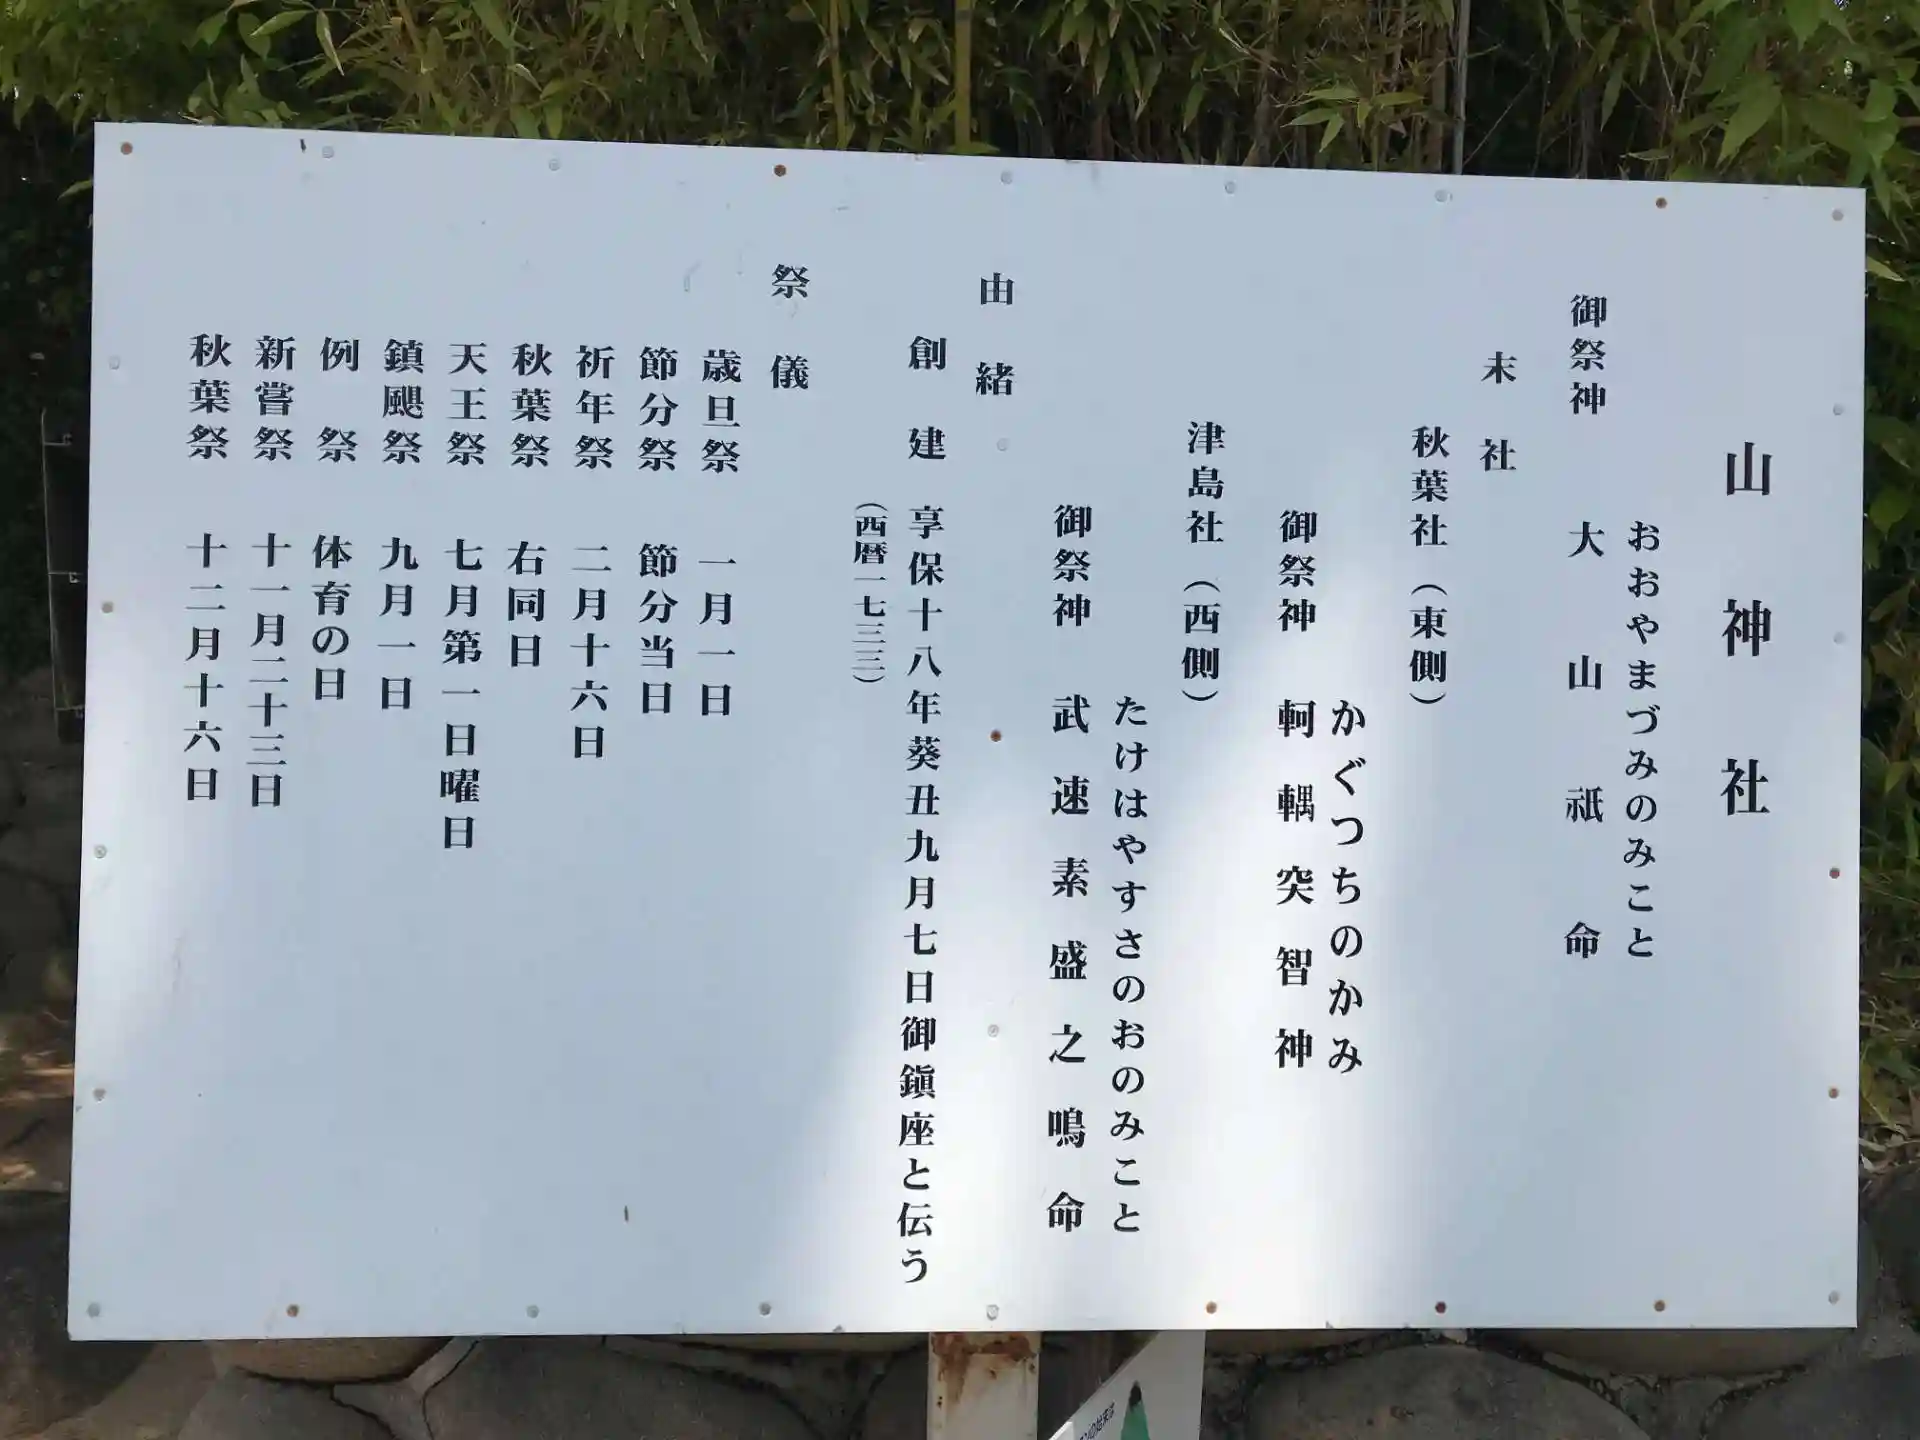 山神社
おおやまづみのみこと
御祭神 大山祇命
末社
秋葉社（東側）
かぐつちのかみ
御祭神 軻遇突智神
津島社（西側）
たけはやすさのおのみこと
御祭神 武速素盛之鳴命
由緒
創建 享保十八年葵丑九月七日御鎭座と伝う
（西暦一七三三）
祭儀
歳旦祭 一月一日
節分祭 節分当日
祈年祭 二月十六日
秋葉祭 右同日
天王祭 七月第一日曜日
鎮颶祭 九月一日
例祭 体育の日
新嘗祭 十一月二十三日
秋葉祭 十二月十六日